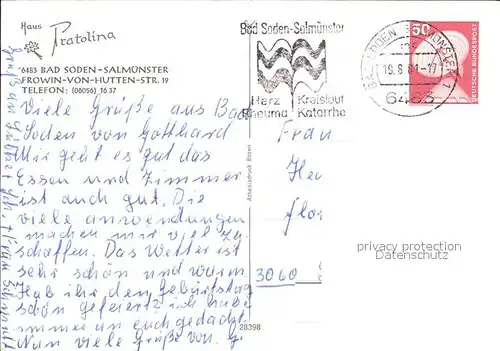 Haus
Pratolina
6483 BAD SODEN-SALMÜNSTER
FROWIN-VON-HUTTEN-STR. 19
TELEFON: (06056) 1637
Viele Grüße aus Bad
Soden von Gotthard
Mir geht es gut das
Essen und Zimmer
ist auch gut. Die
viele anwendungen
machen mir viel zu
schaffen. Das Wetter ist
sehr schön und warm
Hab ihr den Geburtstag
schön gefeiert ich habe
immer an euch gedacht.
Nun viele Grüße von G.
Arhesiadruck Bozen
28398
Bad Soden-Salmünster
Herz Kreislauf
Rheuma Katarrhe
BAD SODEN
19.8.81-17
6483
50
DEUTSCHE BUNDESPOST
Frau
He
flo
3060
privacy protection
Datenschutz